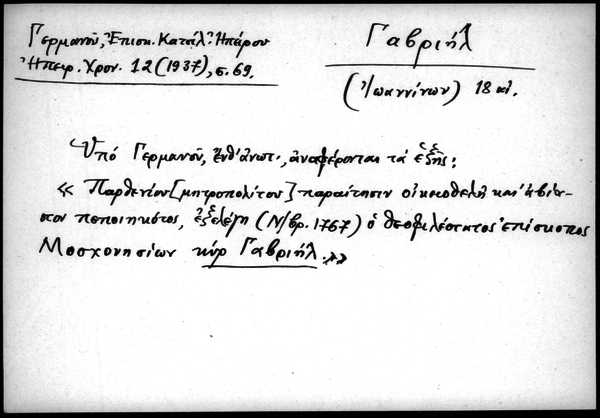 Γερμανοῦ, Ἐπισκ. Κατάλ. Ἠπείρου
Ἠπειρ. Χρον. 12 (1937), σ. 69.
Γαβριήλ
(Ἰωαννίνων) 18 αἰ.
Ὑπό Γερμανοῦ, ἔνθ' ἀνωτ., ἀναφέρονται τά ἑξῆς:
« Παρθενίου [μητροπολίτου] παραίτησιν οἰκειοθελῆ καί ἀβία-
στον πεποιηκότος, ἐξελέγη (Ν/βρ. 1767) ὁ θεοφιλέστατος ἐπίσκοπος
Μοσχονησίων κύρ Γαβριήλ.»